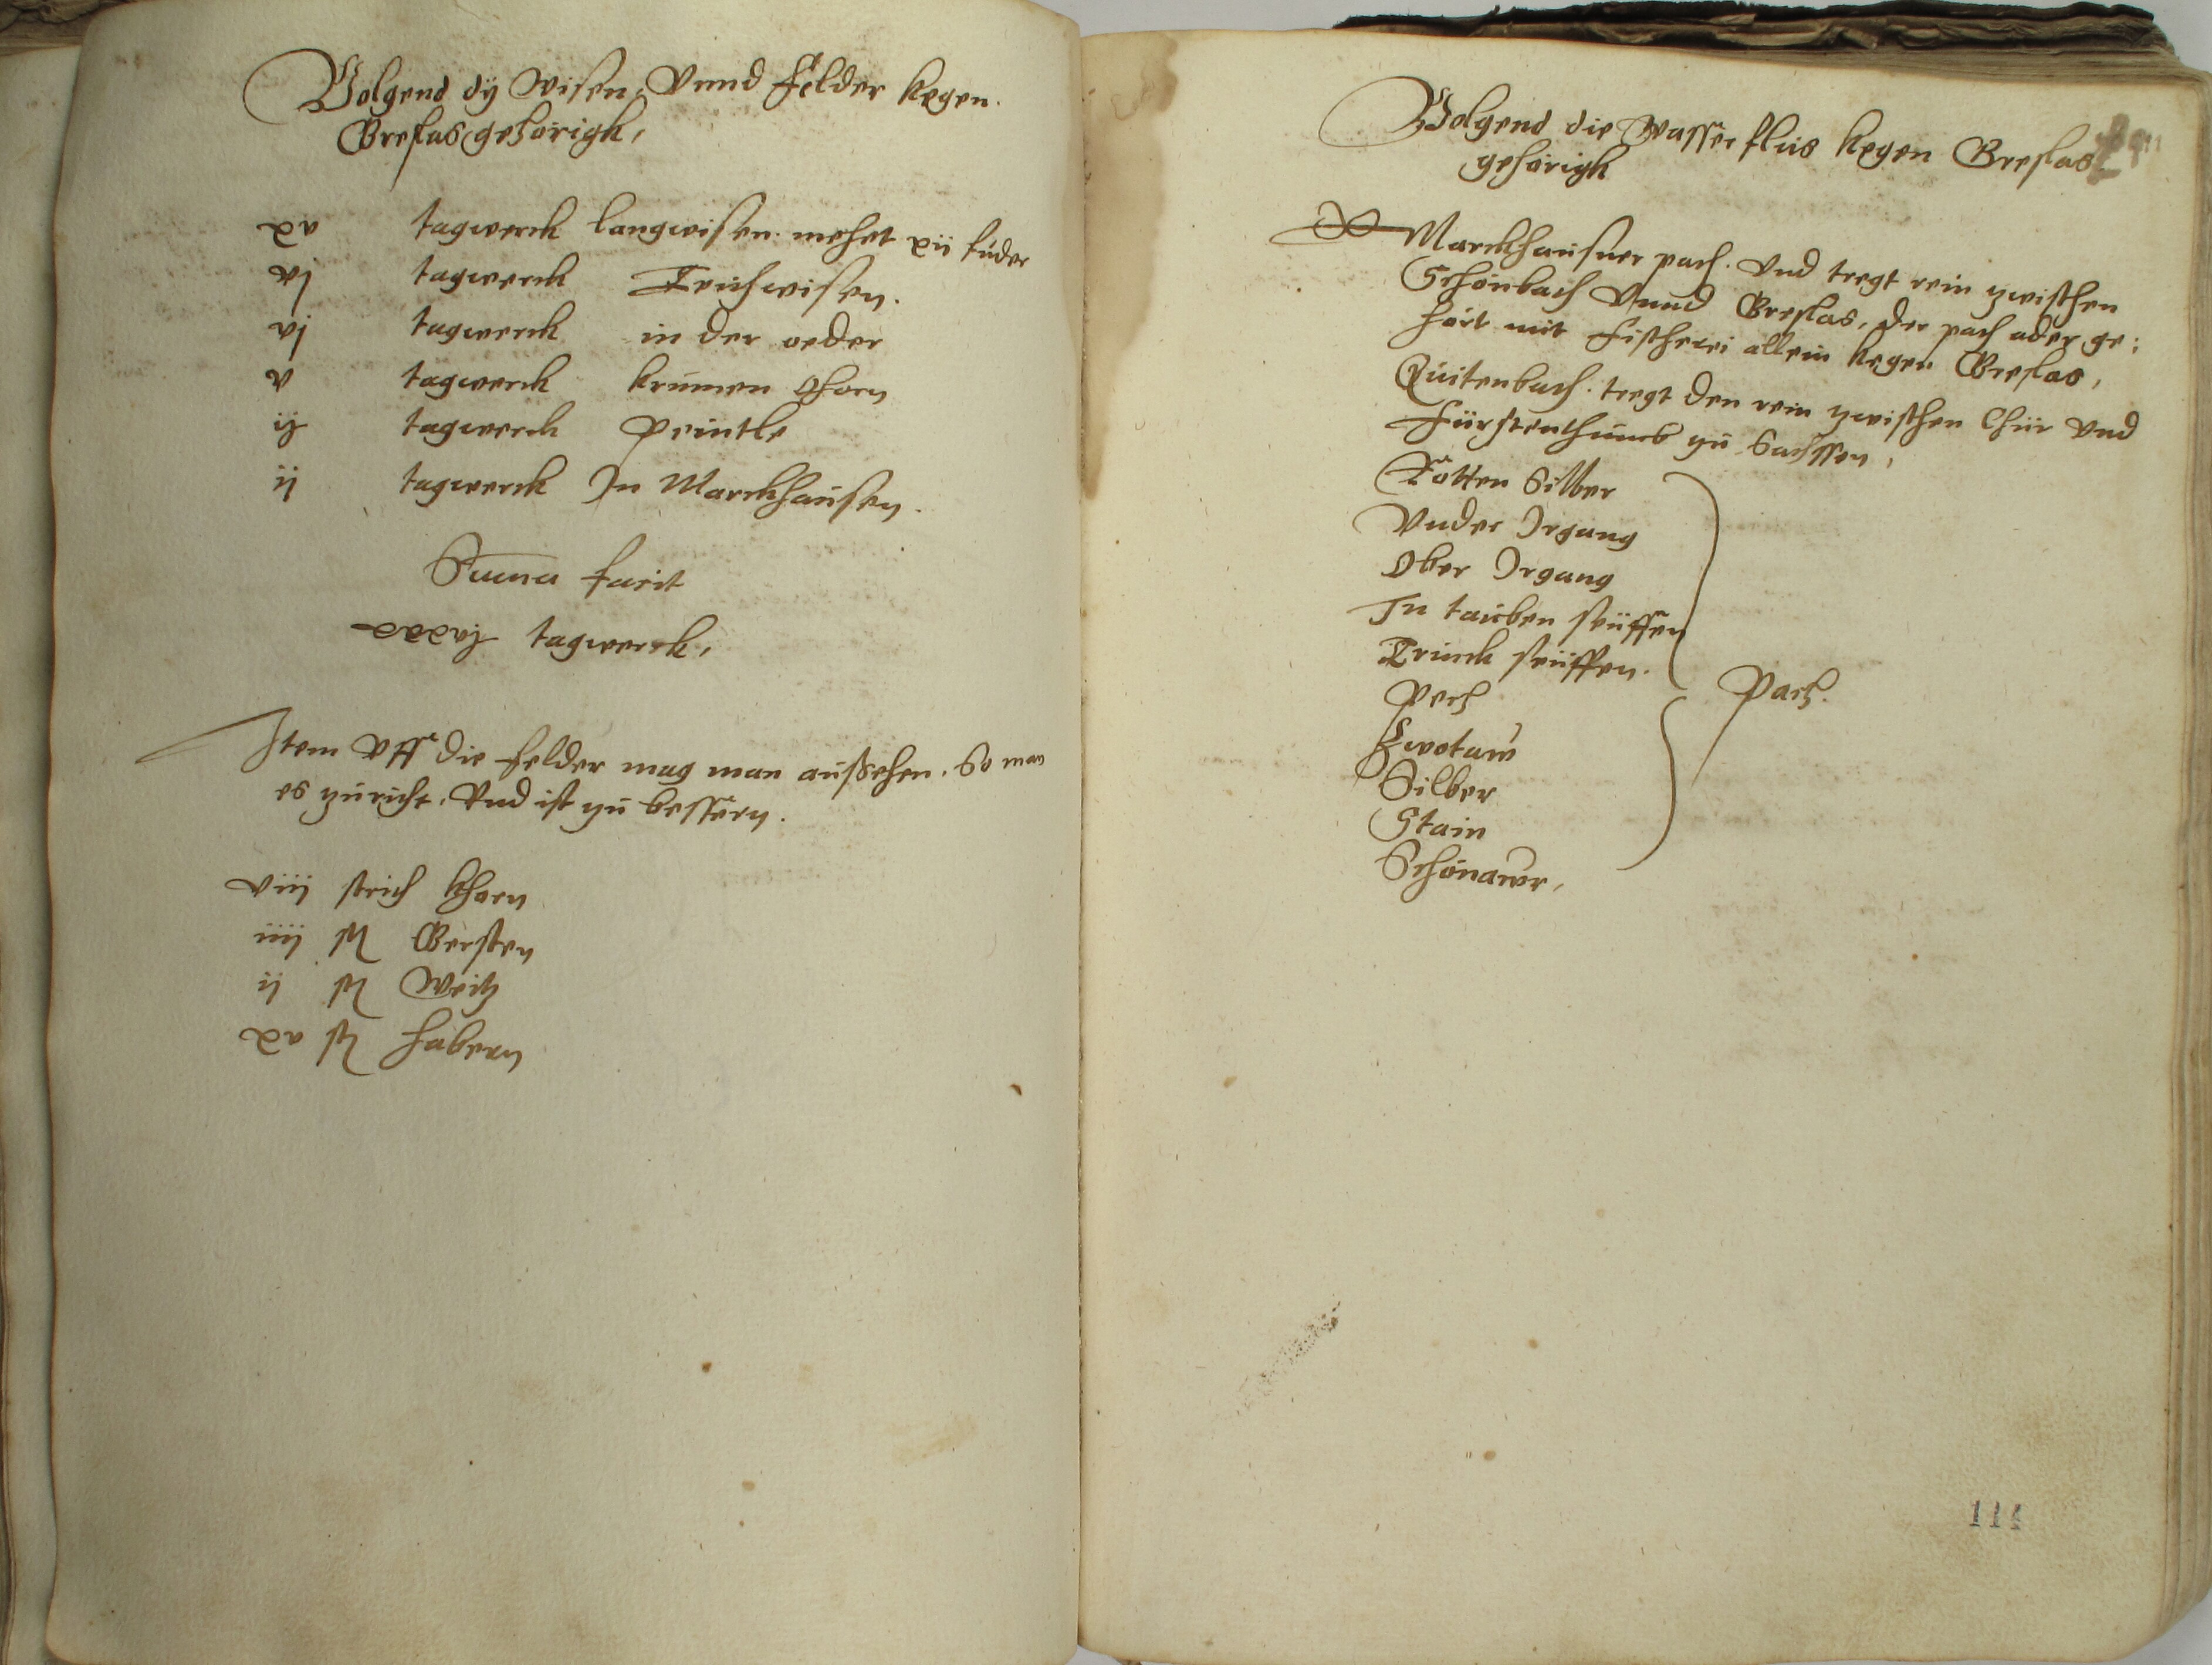 Volgend dÿ Wisen, Vnnd Felder kegen
Greslas gehörigk,
xv tagwerck langwisen. mehet xii fuder
vj tagwerck Teichwisen.
vj tagwerck in der oeder
v tagwerck krumen Ohorn
ij tagwerck Peintle
ij tagwerck In Marckhausen.
Suma facit
xxxvj tagwerck,
Item Vff die felder mag man außsehen. So man
es zuricht, Vnd ist zu bessern.
viij strich khorn
iiij st Gersten
ij st Weitz
xv st habern
Volgend die Wasserflus kegen Greslas
gehörigk
Marckhausner pach. Vnd tregt rein zwischen
Schönbach Vnnd Greslas, der pach ader ge:
hört mit fischerei allein kegen Greslas,
Quitenbach. tregt den rein zwischen Chür Vnd
fürstenthumb zu Sachssen,
Rotten Silber
Vnder Irgang
Ober Irgang
In tauben seüffen
Trinck seüffen.
Pech
Zwotaw
Silber
Stain
Schönawr,
Pach.
114